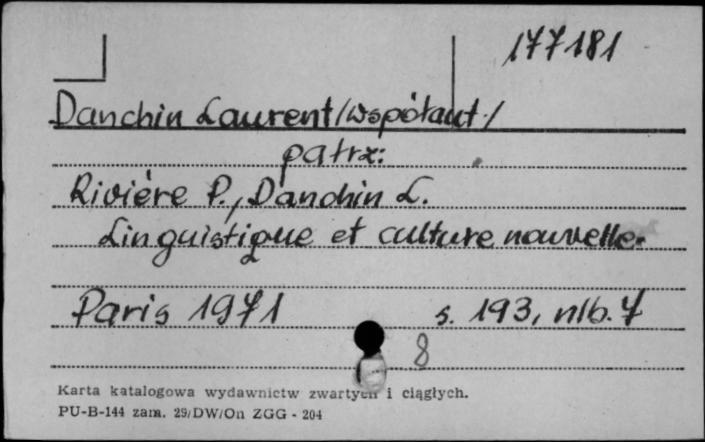 177181
Danchin Laurent /współaut./
patrz:
Rivière P., Danchin L.
Linguistique et culture nouvelle.
Paris 1971 s. 193, nlb. 7
8
Karta katalogowa wydawnictw zwartych i ciągłych.
PU-B-144 zam. 29/DW/On ZGG - 204